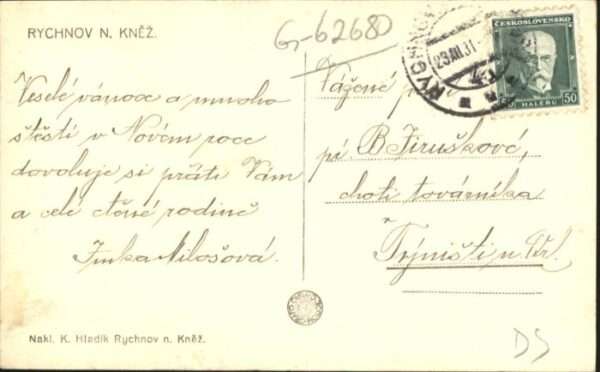 RYCHNOV N. KNĚŽ.
G-62680
23.XII.31
ČESKOSLOVENSKO
50 HALERU 50
Veselé vánoce a mnoho
štěstí v Novém roce
dovoluje si přáti Vám
a celé ctěné rodině
Jinka Milošová.
Vážené
pí B Jiruškové,
choti továrníka
Týništi n. Orl.
Nakl. K. Hladík Rychnov n. Kněž.
DS